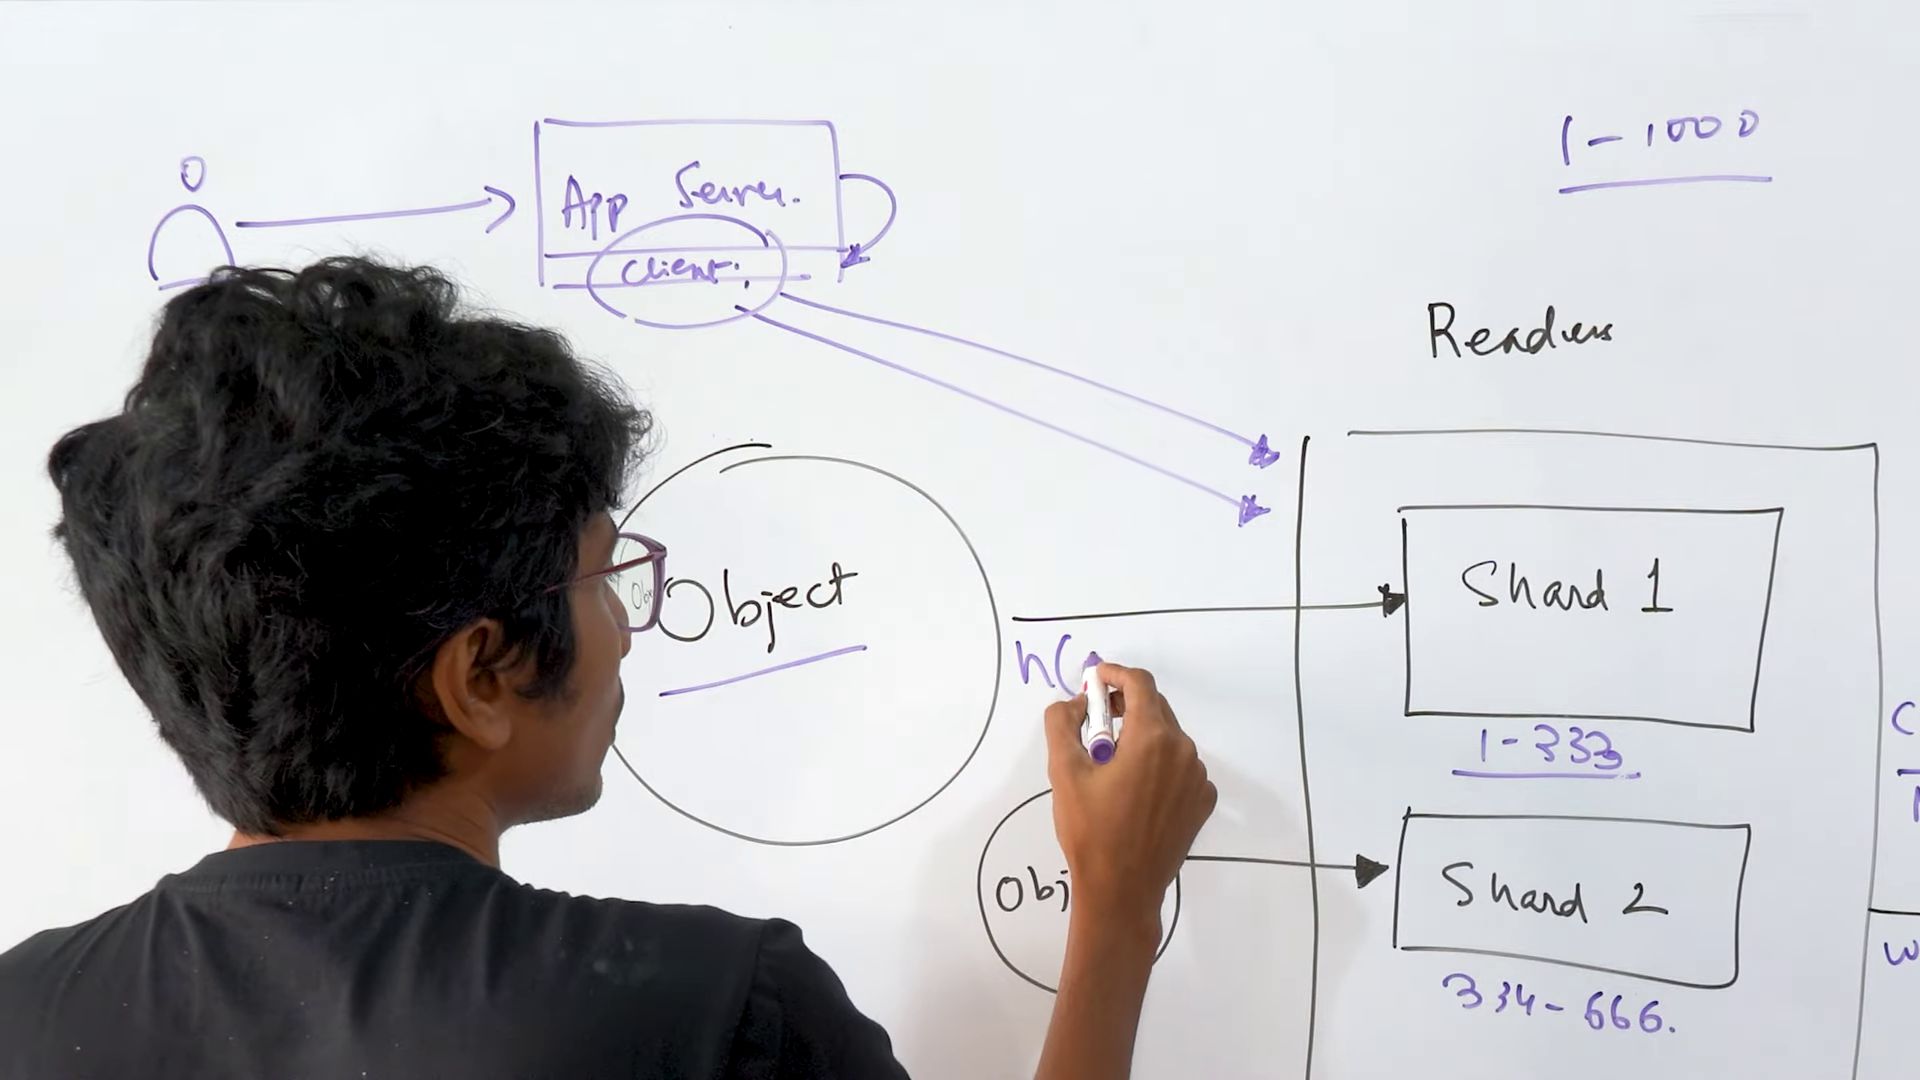 1-1000
App Server.
Client.
Readers
Object
Shard 1
h(
1-333
Obj
Shard 2
334-666.